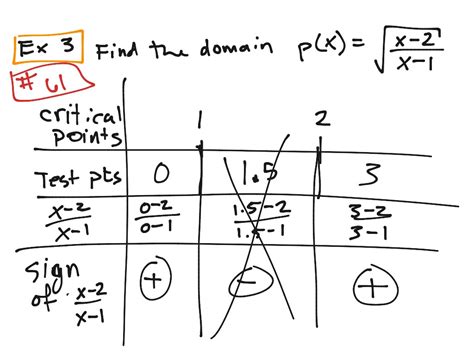 Ex 3 Find the domain p(x) = √((x-2)/(x-1))
# 61
critical points 1 2
Test pts 0 1.5 3
(x-2)/(x-1) (0-2)/(0-1) (1.5-2)/(1.5-1) (3-2)/(3-1)
sign of (x-2)/(x-1) + - +